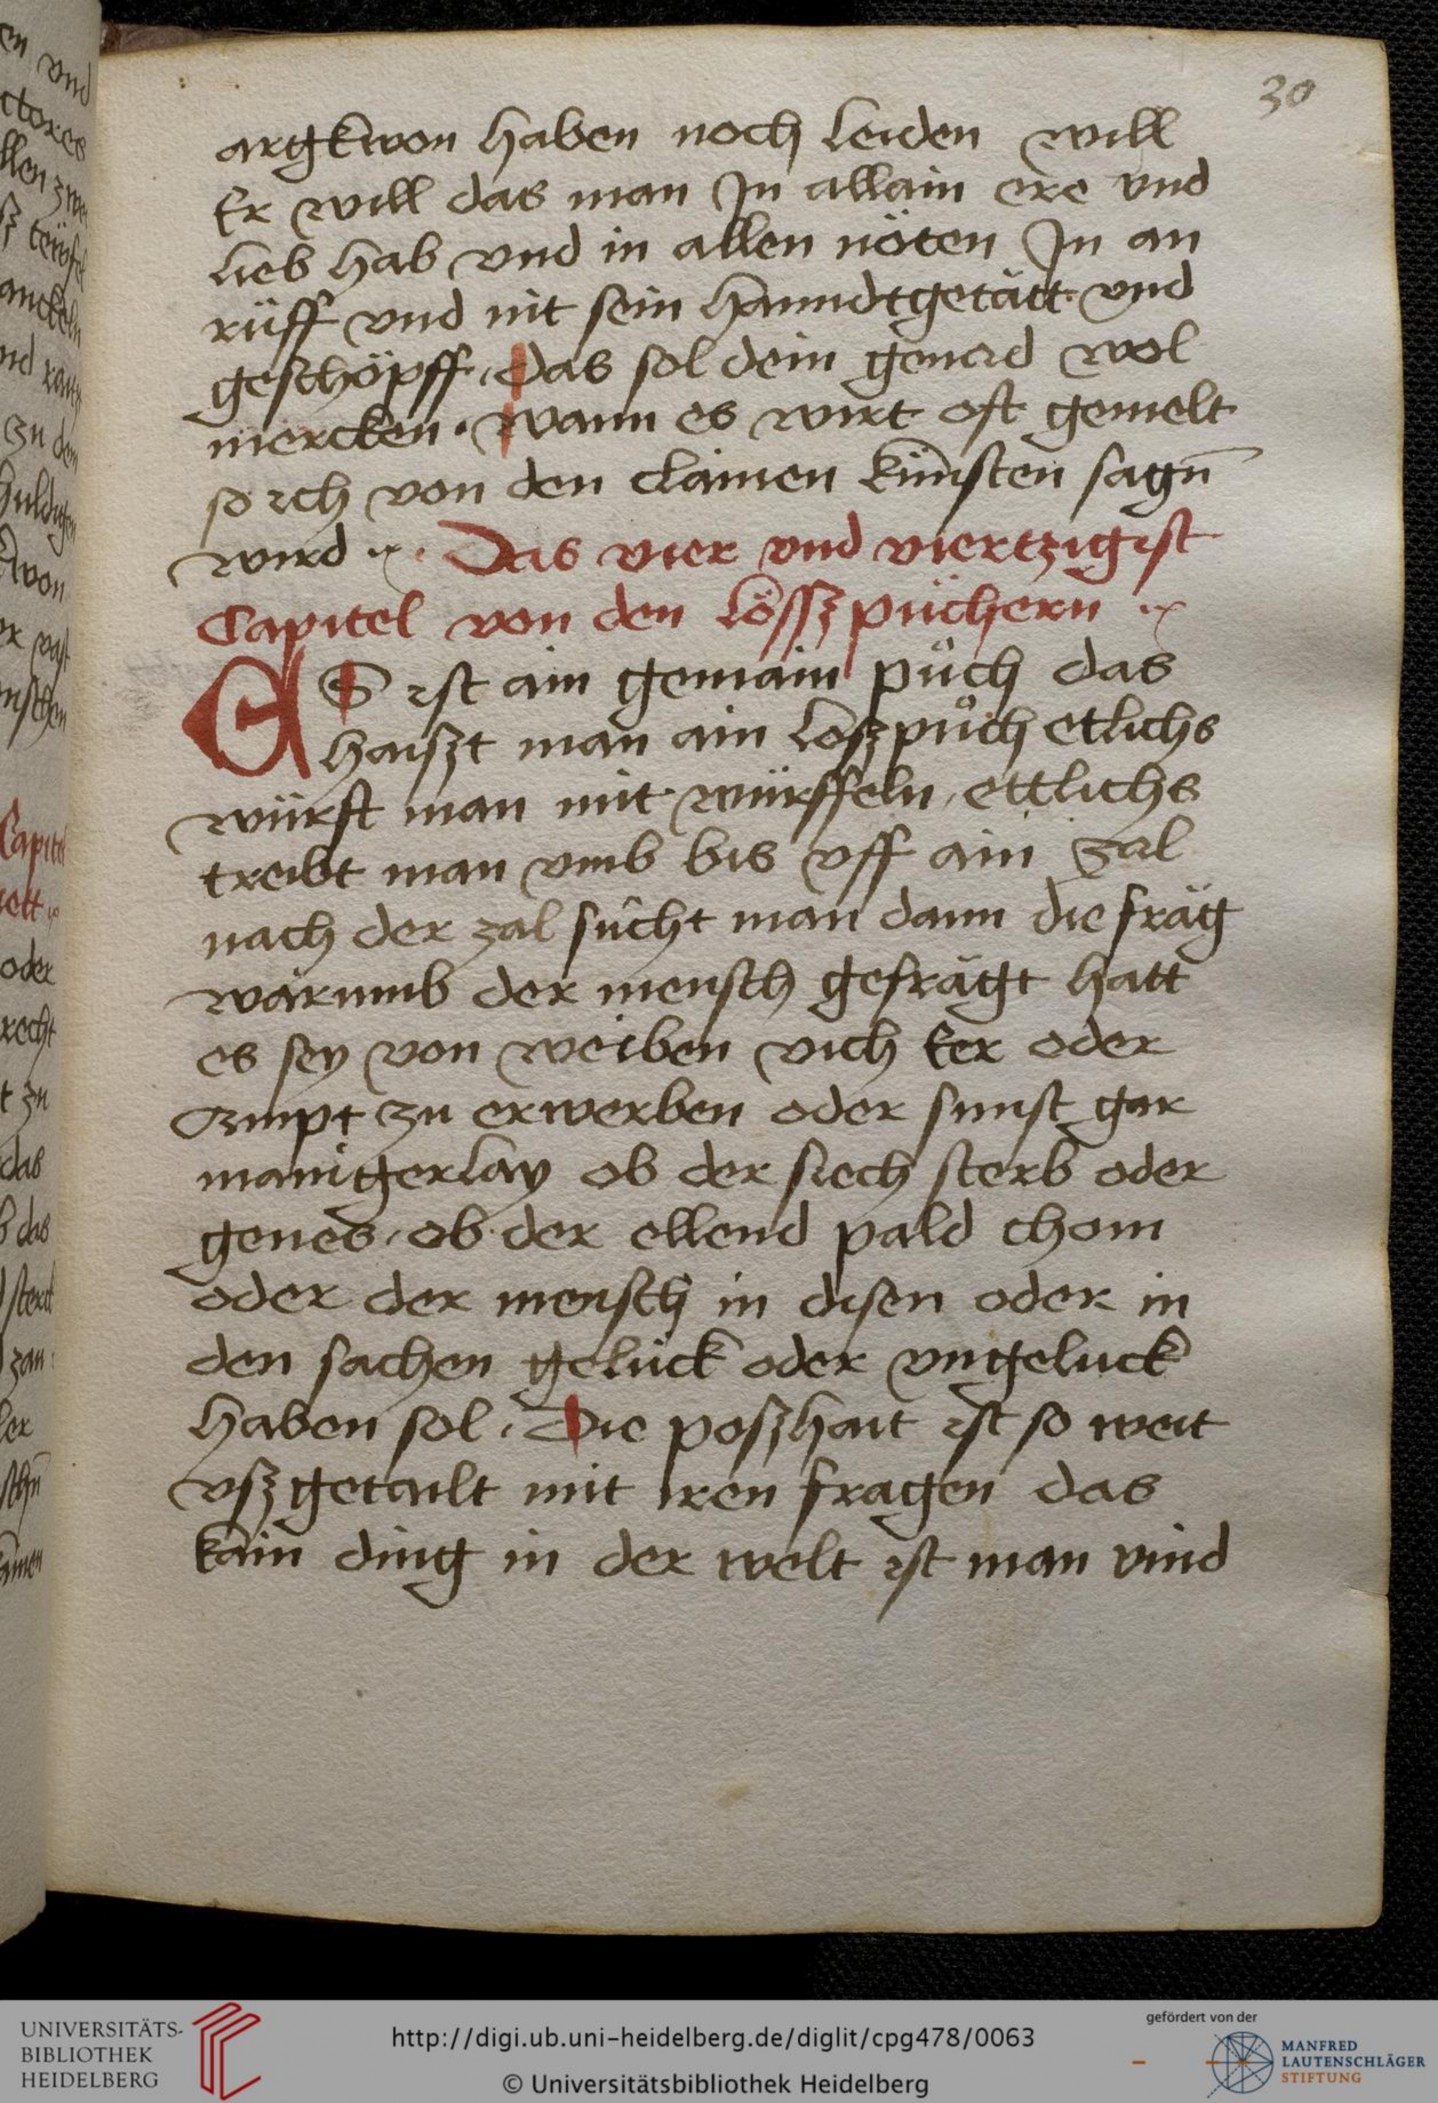 30
argkwon haben noch leiden will
Er will das man In allain ere vnd
lieb hab vnd in allen nöten In an
rüff vnd nit sein hanndtgetätt vnd
geschöpff, das sol dein genad wol
mercken. wann es wirt oft gemelt
so ich von den clainen künsten sagn̄
wird Das vier vnd viertzigist
Capitel von den lösszpüchern
ES ist ain gemain půch das
haiszt man ain loszpůch etlichs
würft man mit würffeln, ettlichs
treibt man vmb bis vff ain zal
nach der zal sücht man dann die fräg
wärumb der mensch gefrägt hatt
es sey von weiben vich Eer oder
Ampt zu erwerben oder sunst gar
manigerlay ob der siech sterb oder
genes, ob der ellend pald chom
oder der mensch in disen oder in
den sachen gelück oder vngeluck
haben sol. Die poszhait ist so weit
vszgetailt mit iren fragen das
kain ding in der welt ist man vind
UNIVERSITÄTS-
BIBLIOTHEK
HEIDELBERG
http://digi.ub.uni-heidelberg.de/diglit/cpg478/0063
© Universitätsbibliothek Heidelberg
gefördert von der
MANFRED
LAUTENSCHLÄGER
STIFTUNG